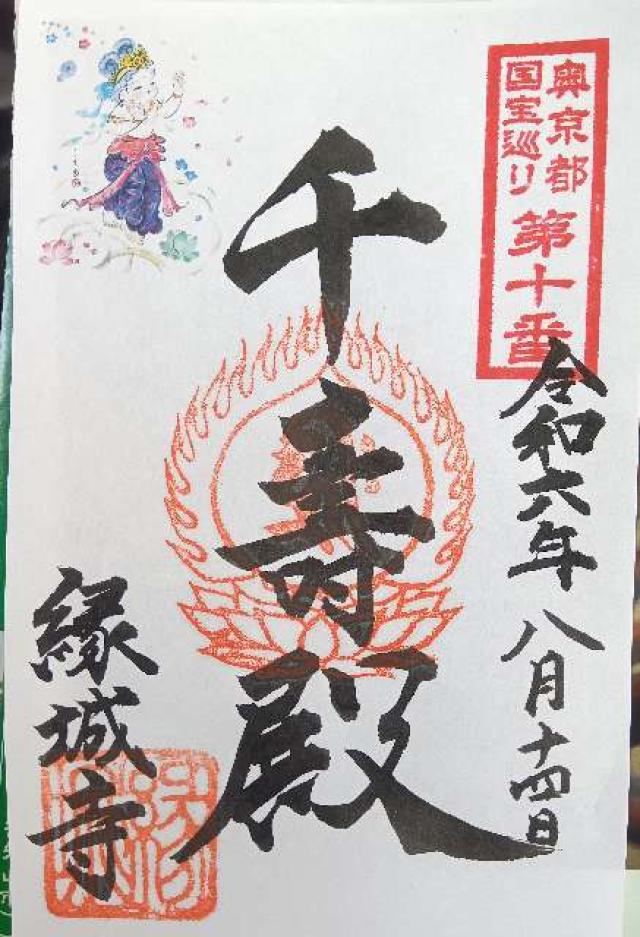 奥京都
国宝巡り
第十番
令和六年
八月十四日
千寿殿
縁城寺